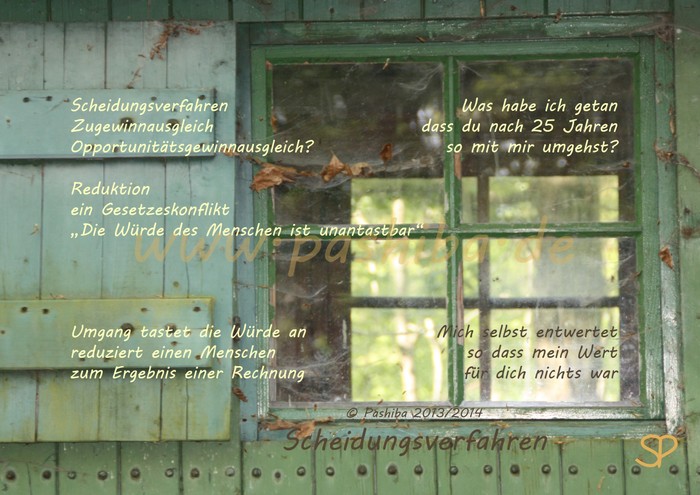 Scheidungsverfahren
Zugewinnausgleich
Opportunitätsgewinnausgleich?
Was habe ich getan
dass du nach 25 Jahren
so mit mir umgehst?
Reduktion
ein Gesetzeskonflikt
„Die Würde des Menschen ist unantastbar“
www.pashiba.de
Umgang tastet die Würde an
reduziert einen Menschen
zum Ergebnis einer Rechnung
Mich selbst entwertet
so dass mein Wert
für dich nichts war
© Pashiba 2013/2014
Scheidungsverfahren
SP